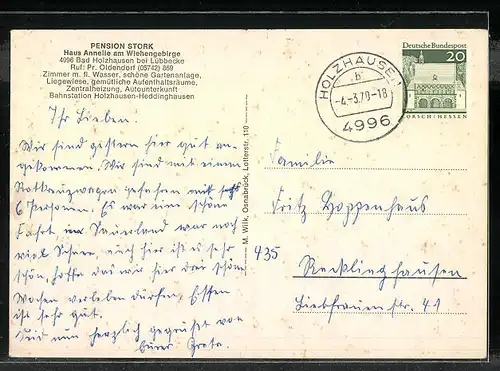 PENSION STORK
Haus Annelie am Wiehengebirge
4996 Bad Holzhausen bei Lübbecke
Ruf: Pr. Oldendorf (05742) 869
Zimmer m. fl. Wasser, schöne Gartenanlage,
Liegewiese, gemütliche Aufenthaltsräume,
Zentralheizung, Autounterkunft
Bahnstation Holzhausen-Heddinghausen
Ihr Lieben.
Wir sind gestern hier gut an-
gekommen. Wir sind mit einem
Rotkreuzwagen gefahren mit sechs
6 Personen. Es war eine schöne
Fahrt im Sauerland war noch
viel Schnee, auch hier ist es sehr
schön, hoffe das wir hier drei schöne
Wochen verleben dürfen, Essen
ist sehr gut.
Seid nun herzlich gegrüßt von
Eurer Grete.
M. Wilk, Osnabrück, Lotterstr. 110
HOLZHAUSEN
b
-4.-3.70-18
4996
Deutsche Bundespost
20
LORSCH/HESSEN
Familie
Fritz Hoppenhaus
435 Recklinghausen
Liebfrauenstr. 41